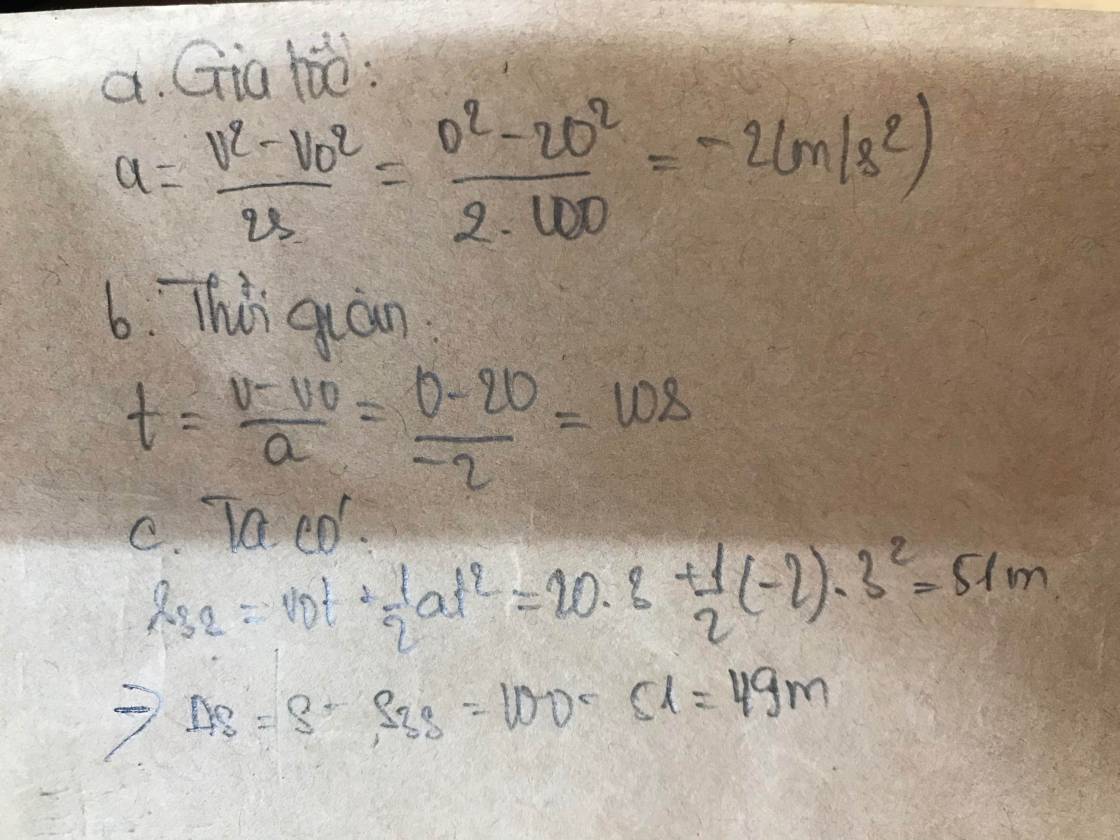 a. Gia tốc:
a = v² - v0² / 2s = 0² - 20² / 2. 100 = -2(m/s²)
b. Thời gian.
t = v - v0 / a = 0 - 20 / -2 = 10s
c. Ta có:
S3s = v0t + 1/2 at² = 20. 3 + 1/2 (-2). 3² = 51m
=> Δs = S - S3s = 100 - 51 = 49m